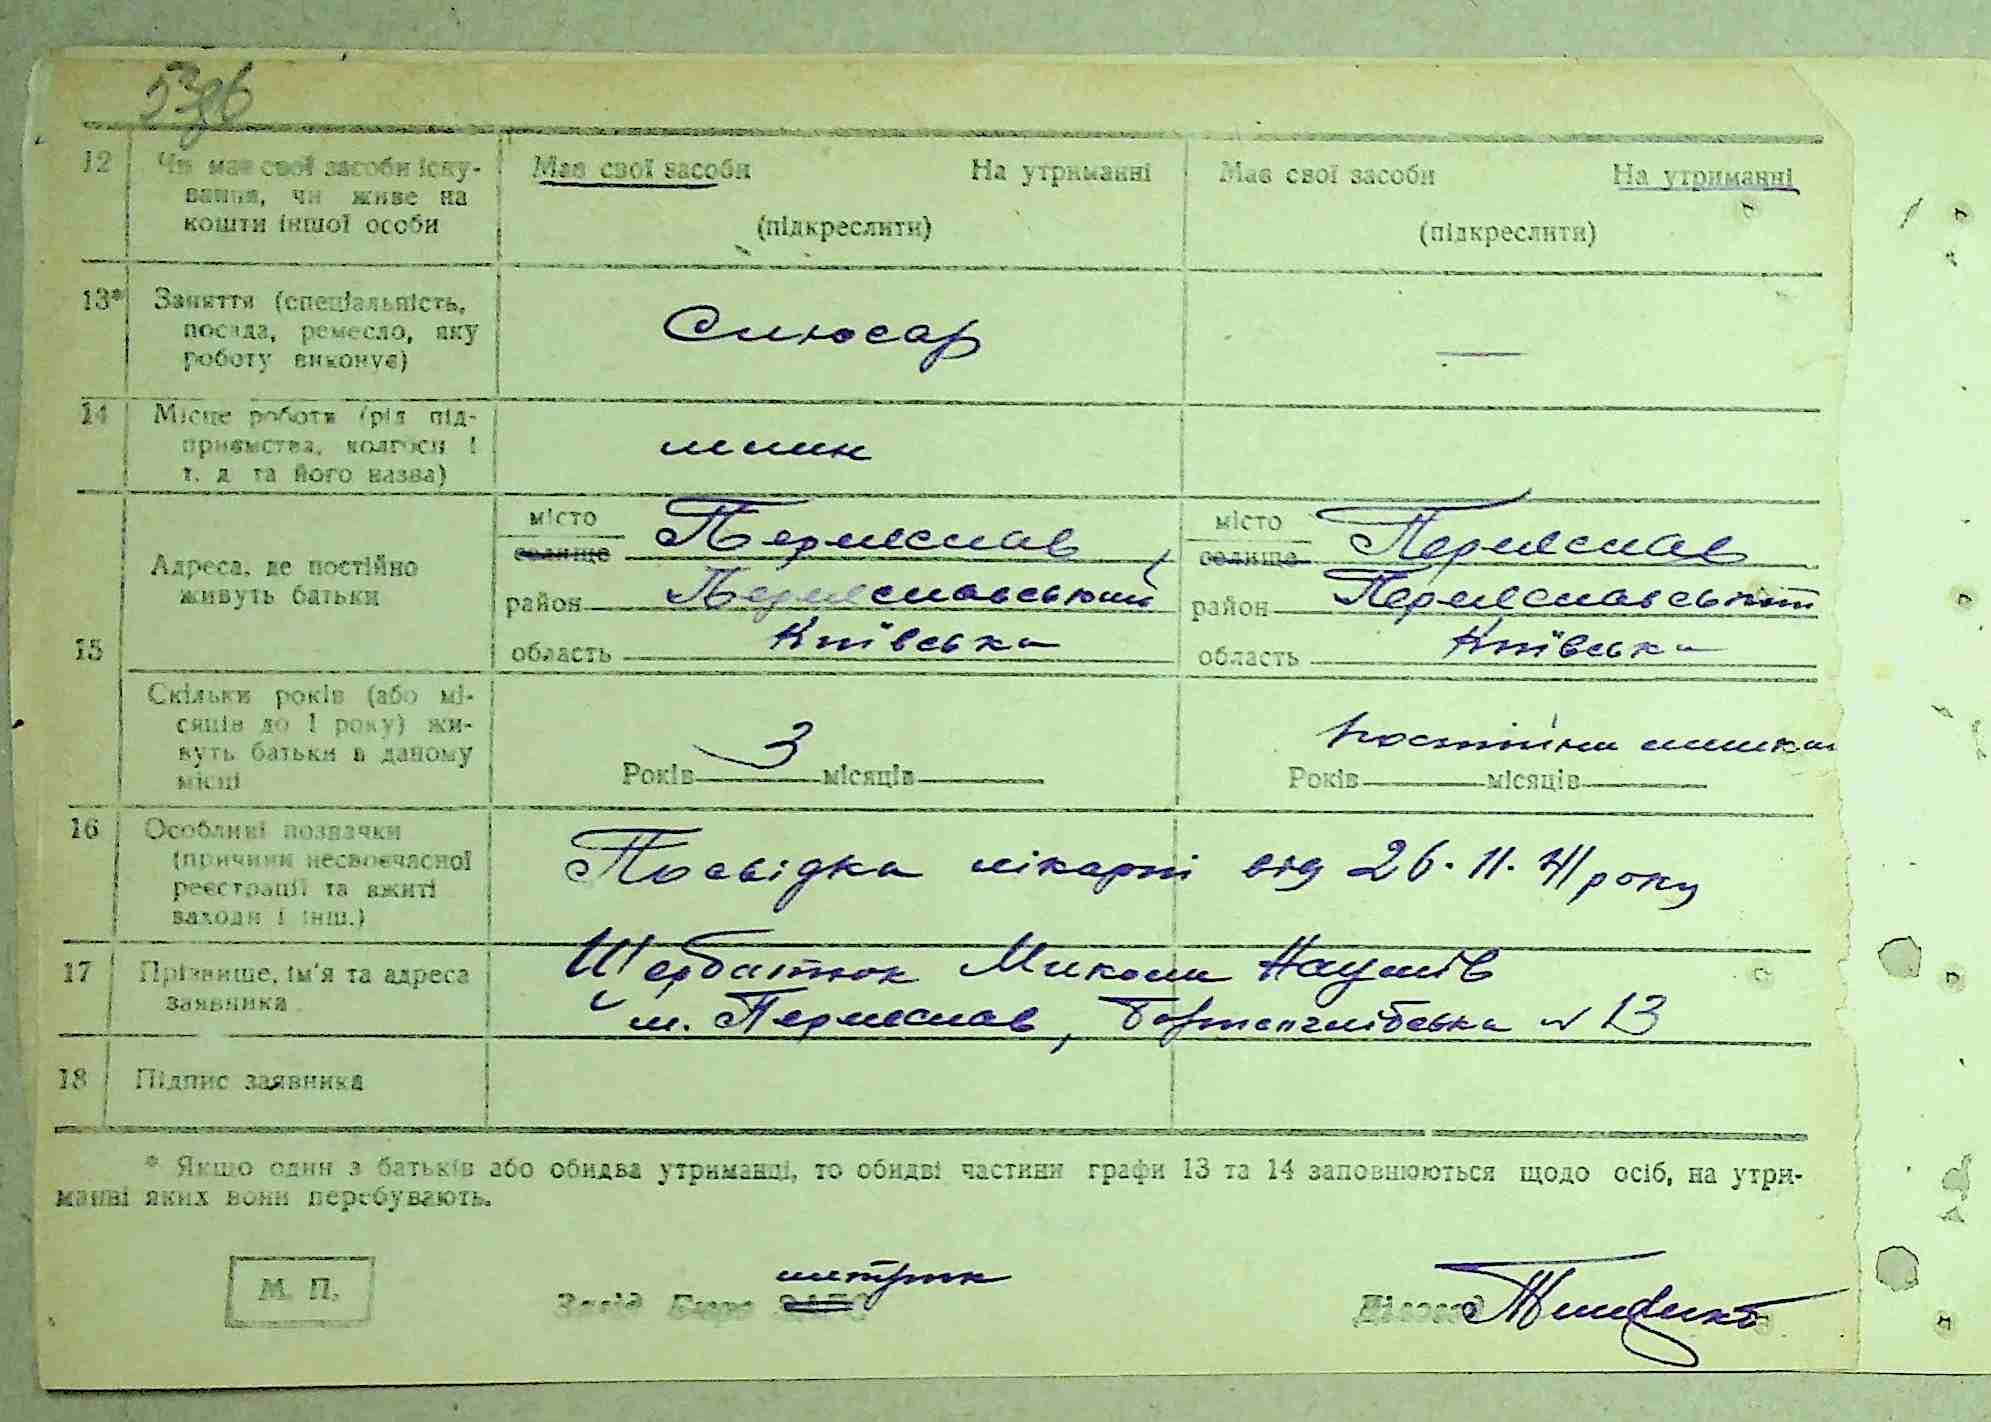 53зв
12 Чи має свої засоби існу-
вання, чи живе на
кошти іншої особи
Має свої засоби На утриманні
(підкреслити)
Має свої засоби На утриманні
(підкреслити)
13* Заняття (спеціальність,
посада, ремесло, яку
роботу виконує)
Слюсар
—
14 Місце роботи (рід під-
приємства, колгосп і
т. д. та його назва)
млин
15 Адреса, де постійно
живуть батьки
місто
селище Переяслав,
район Переяславський
область Київська
місто
селище Переяслав
район Переяславський
область Київська
Скільки років (або мі-
сяців до 1 року) жи-
вуть батьки в даному
місці
Років 3 місяців
постійна мешкан
Років місяців
16 Особливі позначки
(причини несвоєчасної
реєстрації та вжиті
заходи і інш.)
Посвідка лікарні від 26.11.41 року
17 Прізвище, ім'я та адреса
заявника
Щербатюк Микола Наумів
м. Переяслав, Борисоглібська № 13
18 Підпис заявника
* Якщо один з батьків або обидва утриманці, то обидві частини графи 13 та 14 заповнюються щодо осіб, на утри-
манні яких вони перебувають.
М. П.
метрик
Завід Бюро ЗАГС
Діловод